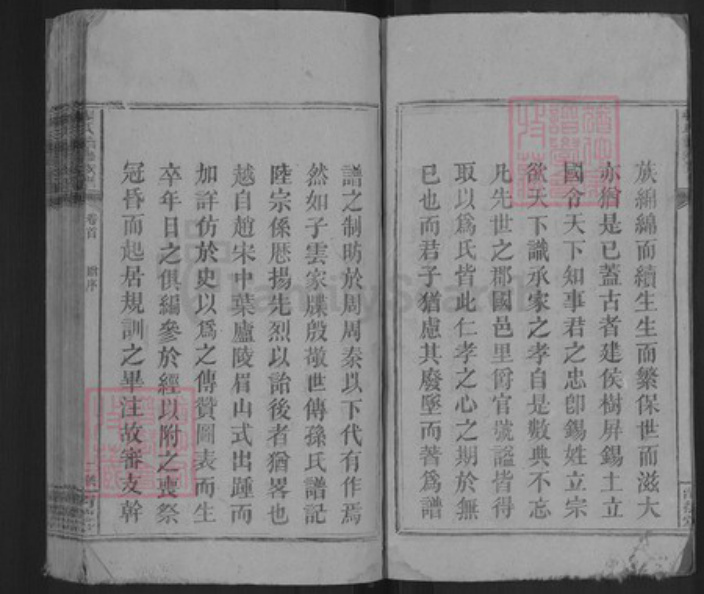 族綿綿而續生生而繁保世而滋大
亦猶是已蓋古者建侯樹屏錫土立
國令天下知事君之忠卽錫姓立宗
欲天下識承家之孝自是數典不忘
凡先世之郡國邑里爵官號謚皆得
取以爲氏皆此仁孝之心之期於無
已也而君子猶慮其廢墜而著爲譜
譜之制昉於周周秦以下代有作焉
然如子雲家牒殷敬世傳孫氏譜記
陸宗係厯揚先烈以詒後者猶畧也
越自趙宋中葉廬陵眉山式出踵而
加詳仿於史以爲之傳贊圖表而生
卒年日之俱編參於經以附之喪祭
冠昏而起居規訓之畢注故審支幹
卷首
序
FamilySearch